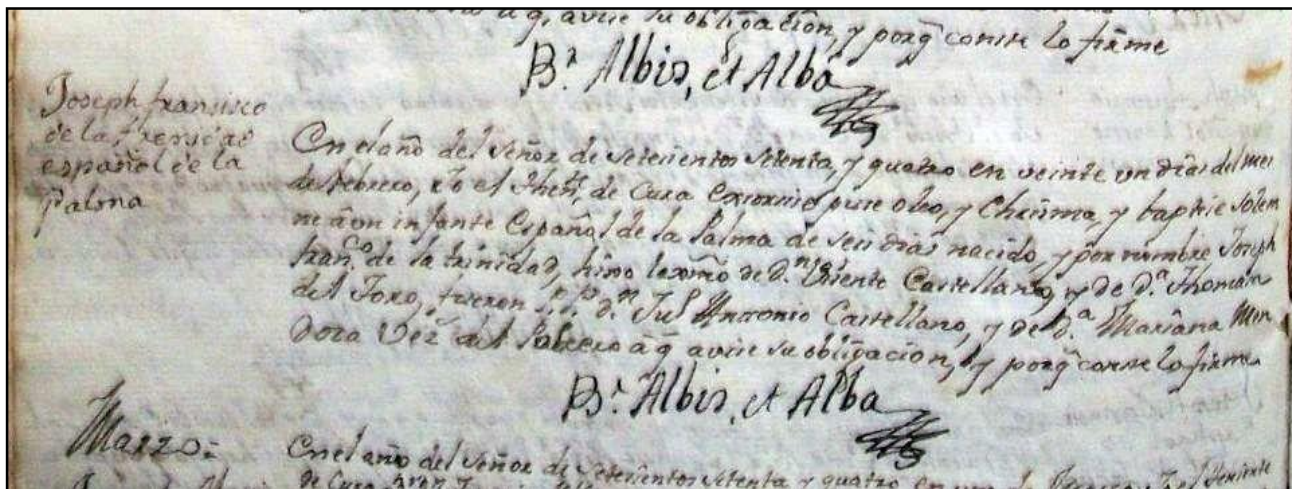 a q̃ avise su obligación, y porq̃ conste lo firme
B.r Albis, et Alba
Joseph fransisco
de la trenidad
español de la
Palma
En el año del Señor de setesientos setenta, y quatro en veinte un dias del mes
de febrero, Yo el Thete. de Cura exorcise puse oleo, y Chrisma, y baptise solem
ne a un infante Español de la Palma de seis dias nacido, y por nombre Joseph
Fran.co de la trinidad, hijo lexmo de d.n Visente Castellano, y de d.a Thomasa
del Toro, fueron P.P. d.n Jul Antonio Castellano, y de d.a Mariana Men
doza Vez.s del Potrero a q̃ avise su obligacion, y porq̃ conste lo firme
B.r Albis, et Alba
Marzo=
En el año del Señor de setesientos setenta y quatro en
de Cura